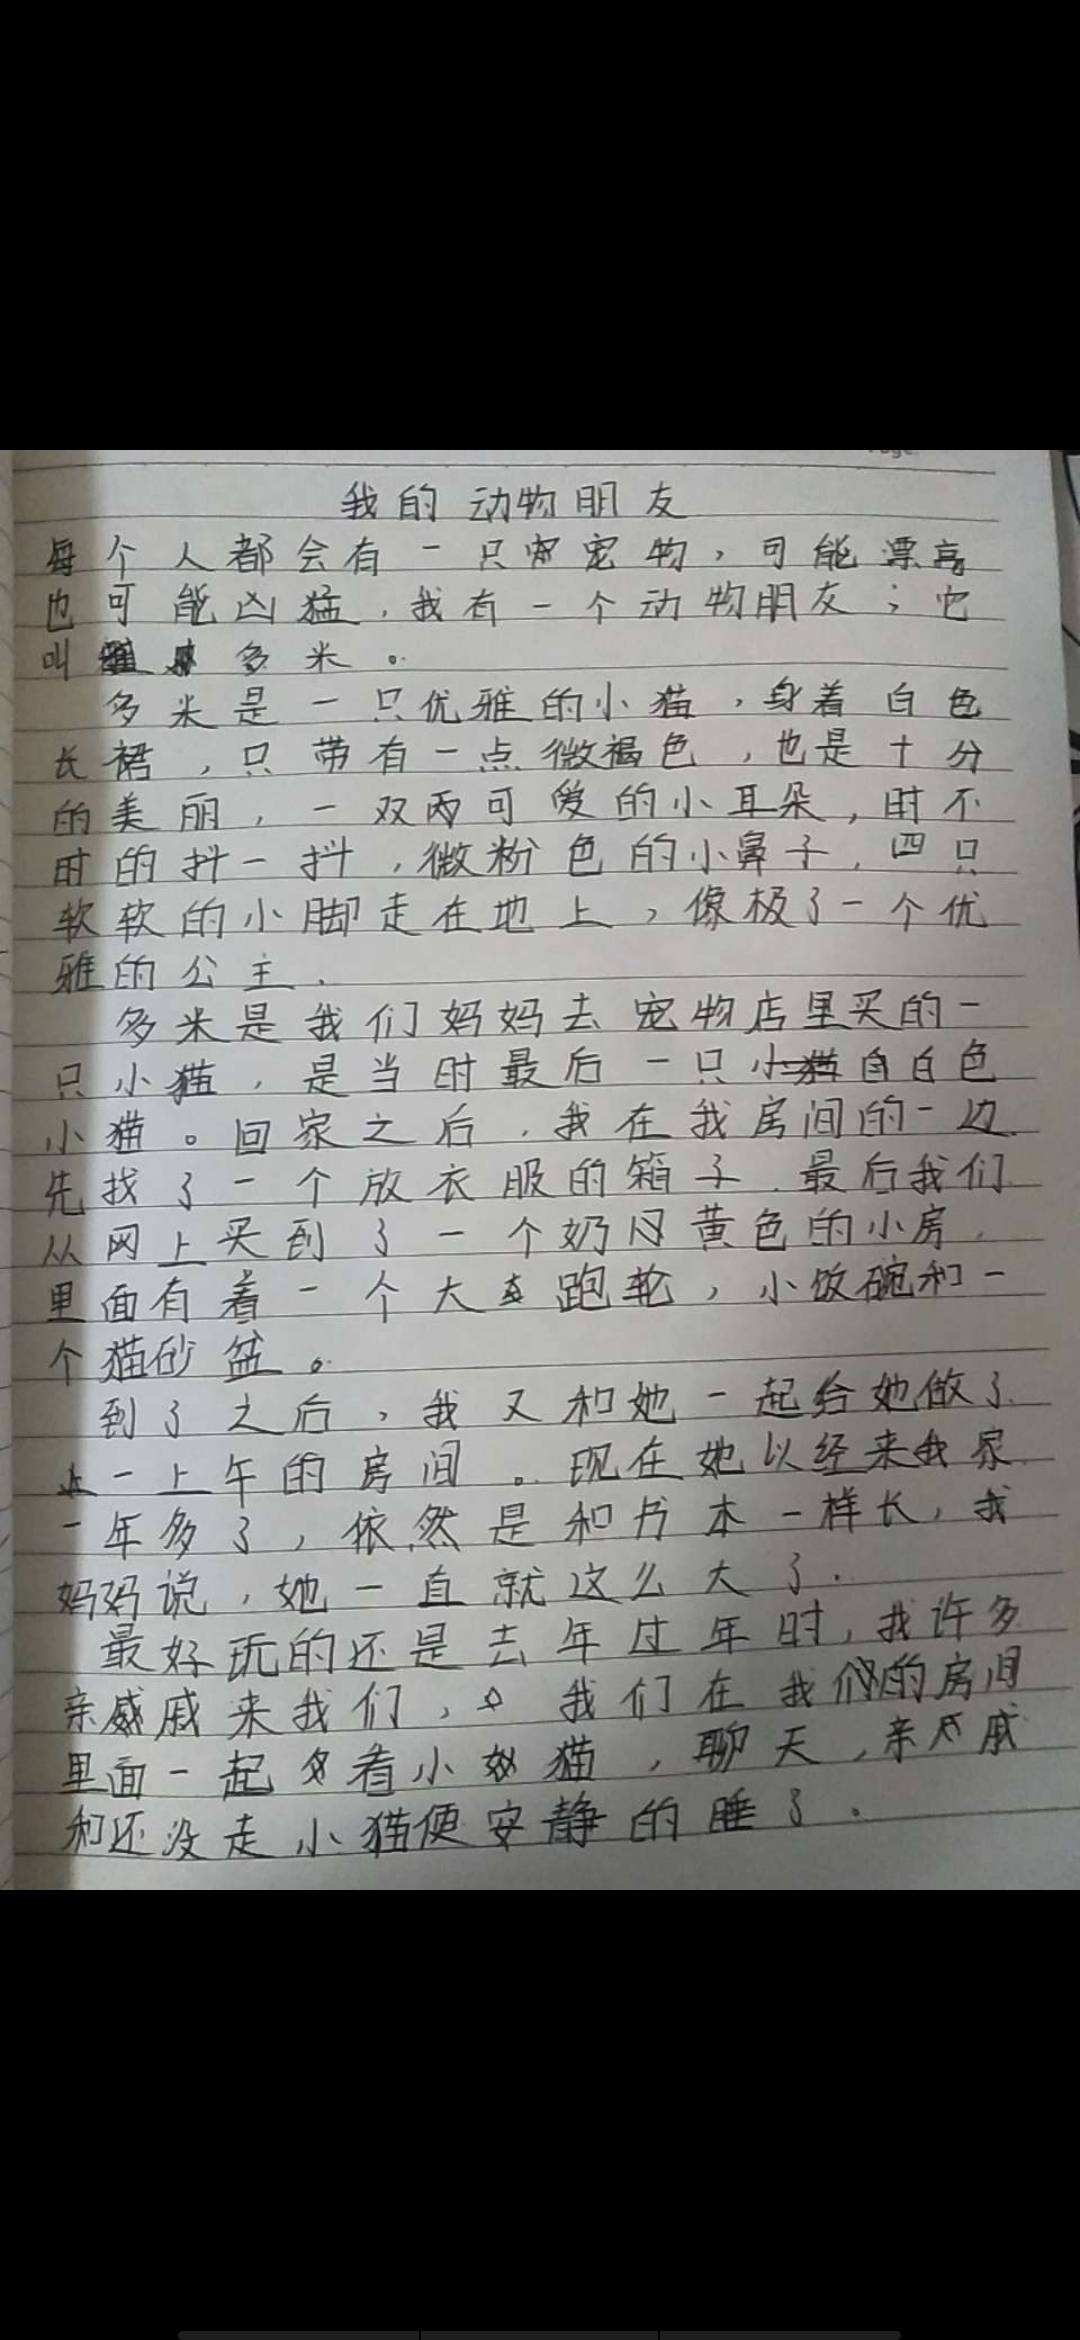 我的动物朋友
每个人都会有一只宠物，可能漂亮
也可能凶猛，我有一个动物朋友；它
叫多米。
多米是一只优雅的小猫，身着白色
长裙，只带有一点微褐色，也是十分
的美丽，一双两可爱的小耳朵，时不
时的抖一抖，微粉色的小鼻子，四只
软软的小脚走在地上，像极了一个优
雅的公主.
多米是我们妈妈去宠物店里买的一
只小猫，是当时最后一只白色
小猫。回家之后，我在我房间的一边
先找了一个放衣服的箱子.最后我们
从网上买到了一个奶黄色的小房，
里面有着一个大跑轮，小饭碗和一
个猫砂盆。
到了之后，我又和她一起给她做了
一上午的房间。现在她以经来我家
一年多了，依然是和书本一样长，我
妈妈说，她一直就这么大了.
最好玩的还是去年过年时，我许多
亲戚来我们，我们在我们的房间
里面一起看小猫，聊天，亲戚
和还没走小猫便安静的睡了。